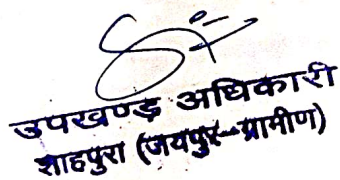 उपखण्ड अधिकारी
शाहपुरा (जयपुर-ग्रामीण)